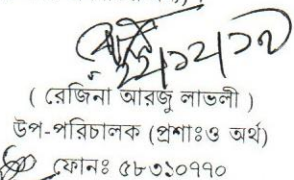 ( রেজিনা আরজু লাভলী )
উপ-পরিচালক (প্রশাঃও অর্থ)
ফোনঃ ৫৮৩১০৭৭০